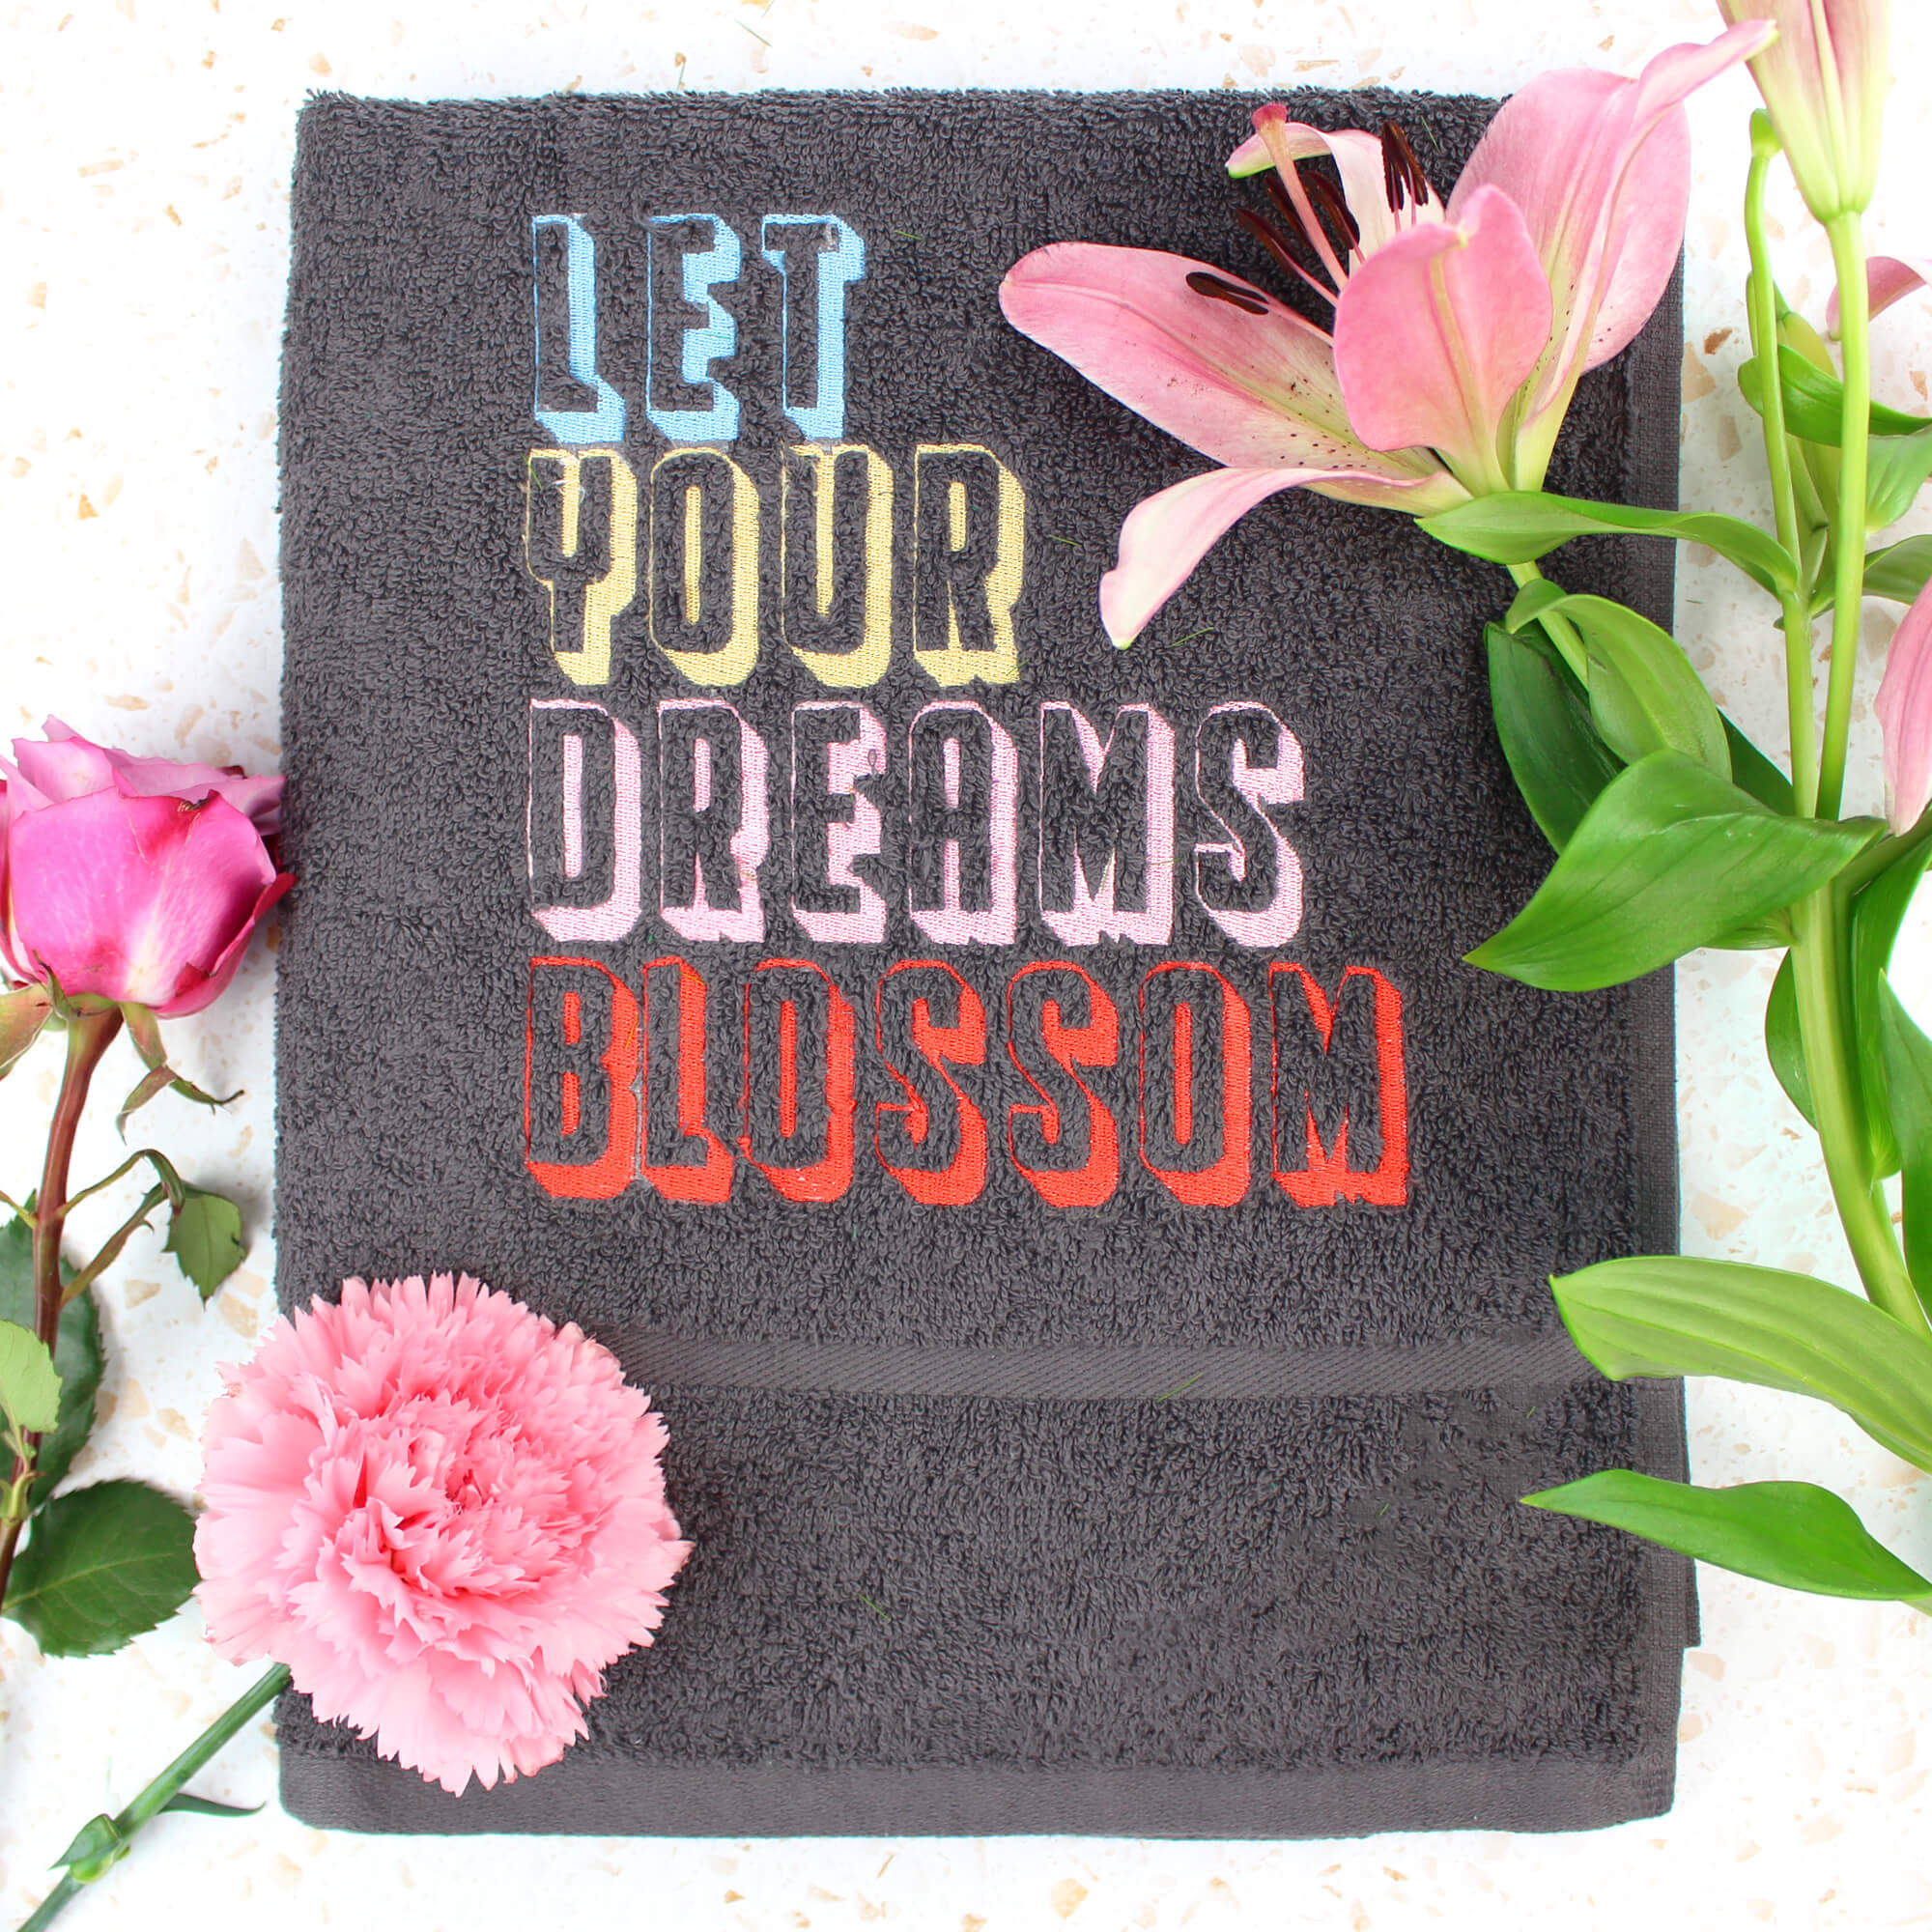 LET
YOUR
DREAMS
BLOSSOM